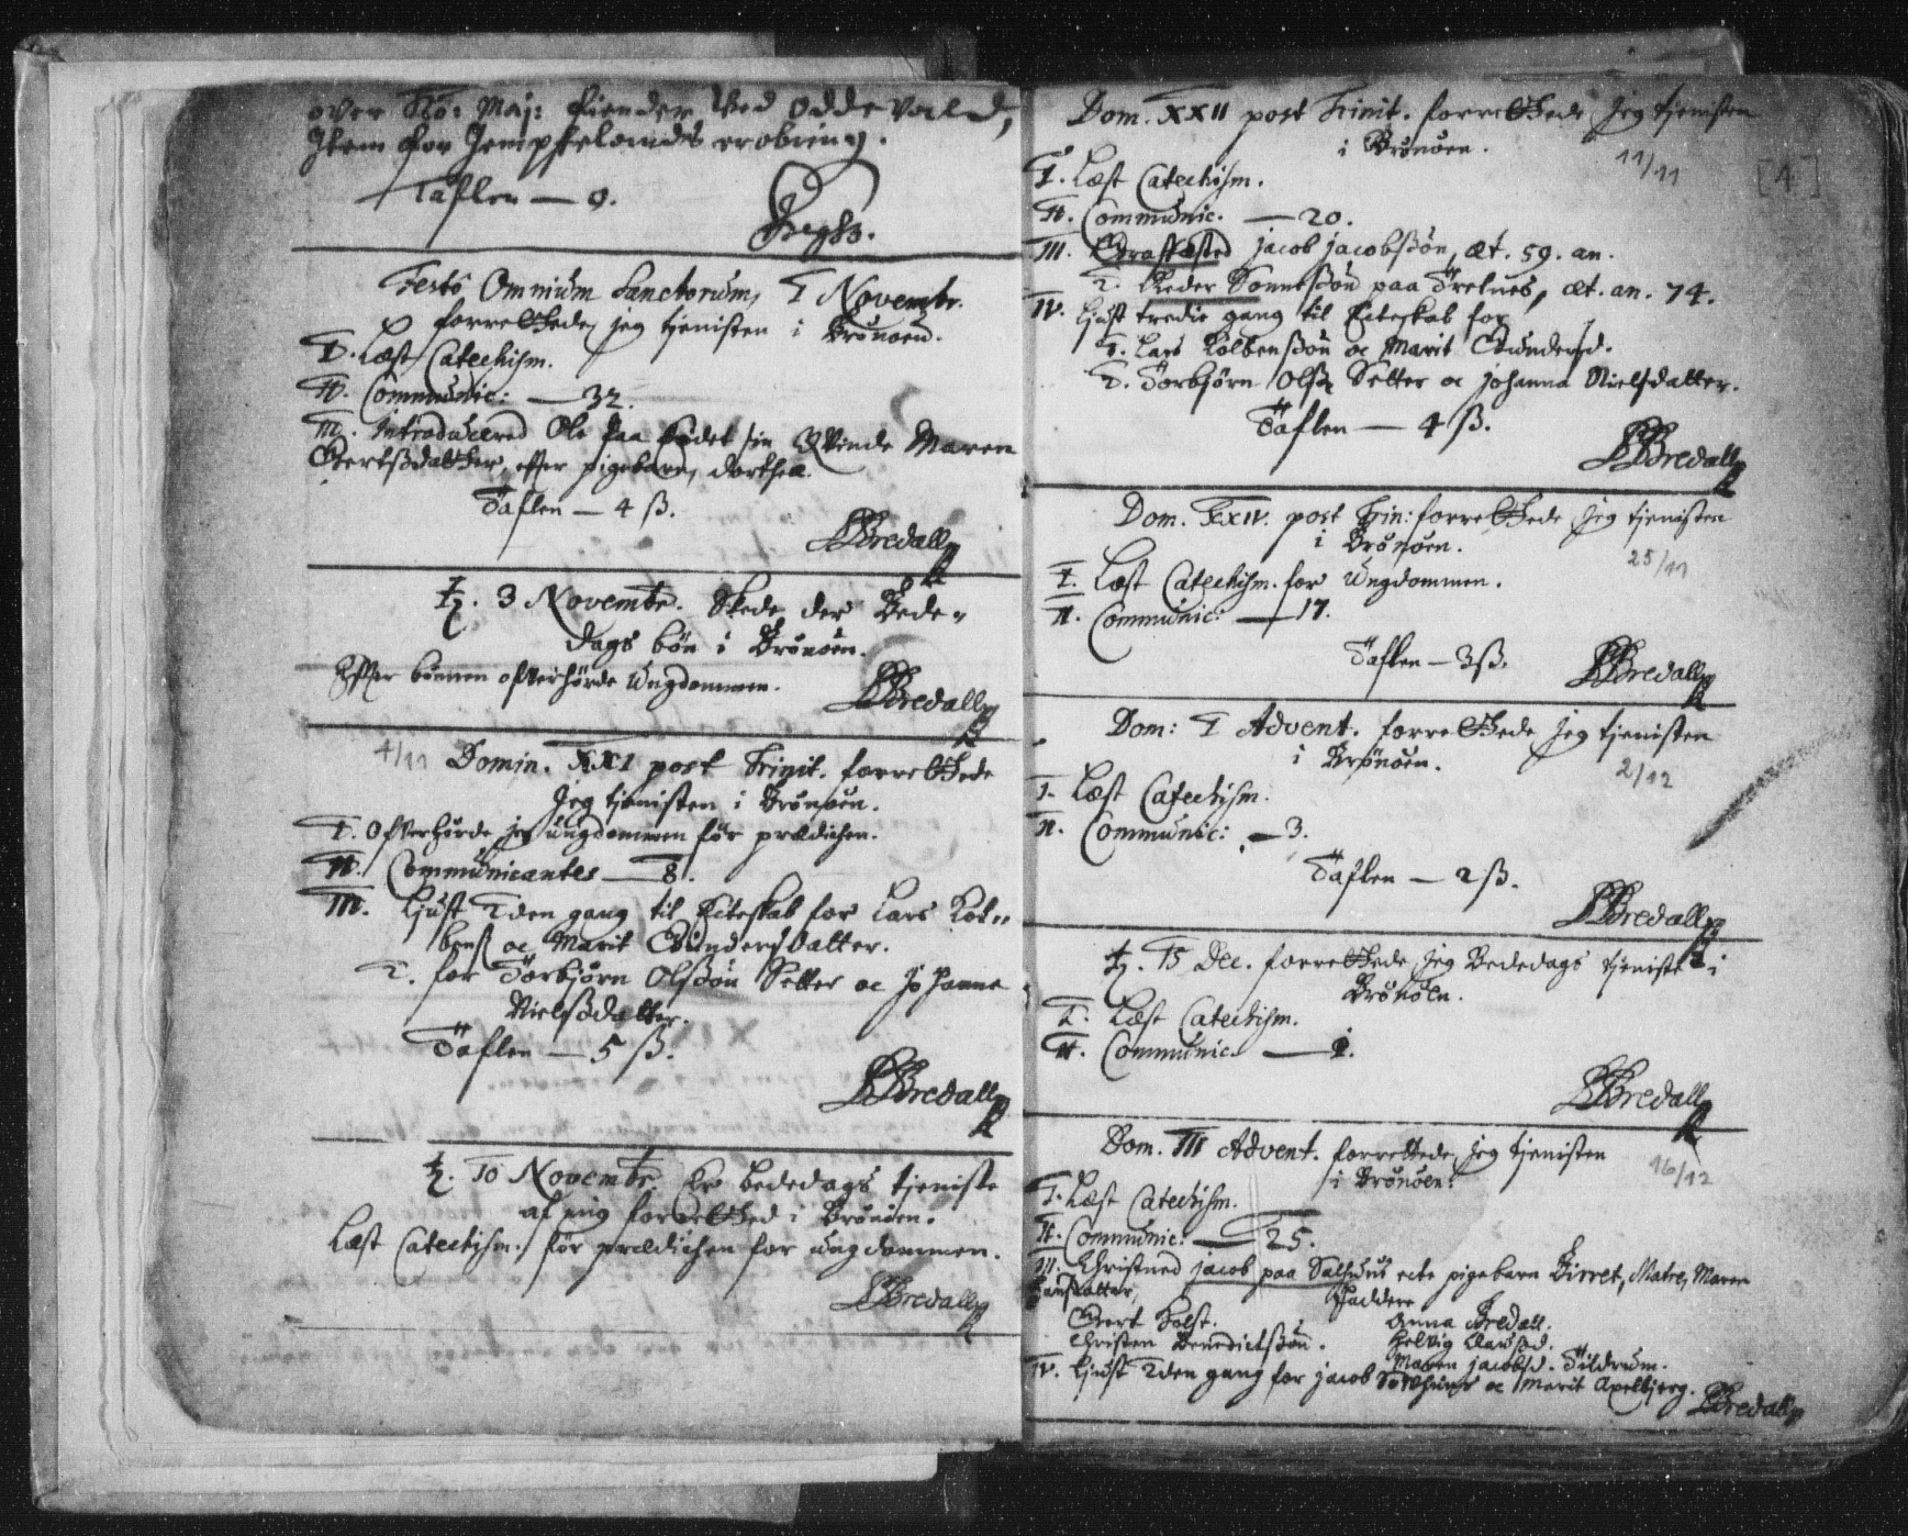 over Ko: Maj: fiender Ved Oddevald,
Item for Jempstelands erobring.
Taflen — 0.
Festo Omnium Sanctorum, I Novembr.
forrettede jeg tjenisten i Brönöen.
I. Læst Catechism.
II. Communic: — 32.
III. Introducered Ole paa sin Qvinde Maren
Gertsdatter, effter pigebarn, dorthea.
Taflen — 4 ß.
Bredall
♄. 3 Novembr. Skede der Bede-
dags bön i Brönöen.
Effter bönnen offverhörde Ungdommen.
Bredall
4/11
Domin. XXI post Trinit. forrettede
Jeg tjenisten i Brönöen.
I. Offverhörde jeg ungdommen för prædichen.
II. Communicantes — 8.
III. Ljust 2den gang til Ecteskab for Lars Kol-
bens. oc Marit Gundersdatter.
2. for Torbjörn Olssön Setter oc Johanna
Nielssdatter.
Taflen — 5 ß.
Bredall
♄. 10 Novembr. Er bededags tjeniste
af mig forretthed i Brönöen.
Læst Catechism. för prædichen for ungdommen.
Bredall
Dom. XXII post Trinit. forrettede Jeg tjenisten
i Brönöen.
11/11
[4]
I. Læst Catechism.
II. Communic. — 20.
III. Jacob Jacobssön, æt. 59. an.
2. Peder paa æt. an. 74.
IV. Ljust tredie gang til Ecteskab for
1. Lars Kolbenssön oc Marit Gundersd.
2. Torbjörn Olss. Setter oc Johanna Nielsdatter.
Taflen — 4 ß.
Bredall
Dom. XXIV. post Trin: forrettede Jeg tjenisten
i Brönöen.
25/11
I. Læst Catechism. for Ungdommen.
II. Communic: — 17.
Taflen — 3 ß.
Bredall
Dom: I Advent. forrettede Jeg tjenisten
i Brönöen.
2/12
I. Læst Catechism.
II. Communic: — 3.
Taflen — 2 ß.
Bredall
♄. 15 Dec. forrettede Jeg Bededags tjeniste i
Brönöen.
I. Læst Catechism.
II. Communic. — 1.
Bredall
Dom. III Advent. forrettede Jeg tjenisten
i Brönöen.
16/12
I. Læst Catechism.
II. Communic: — 25.
III. Christned Jacob paa Salhuus ecte pigebarn Birret, Matre, Maren
Hansdatter,
Faddere
Gert Holst.
Anna Bredall.
Christen Benedictssön.
Helvig Clausd.
Maren Jacobsd. Tildrum.
IV. Ljust 2den gang for Jacob oc Marit Apelbjerg.
Bredall